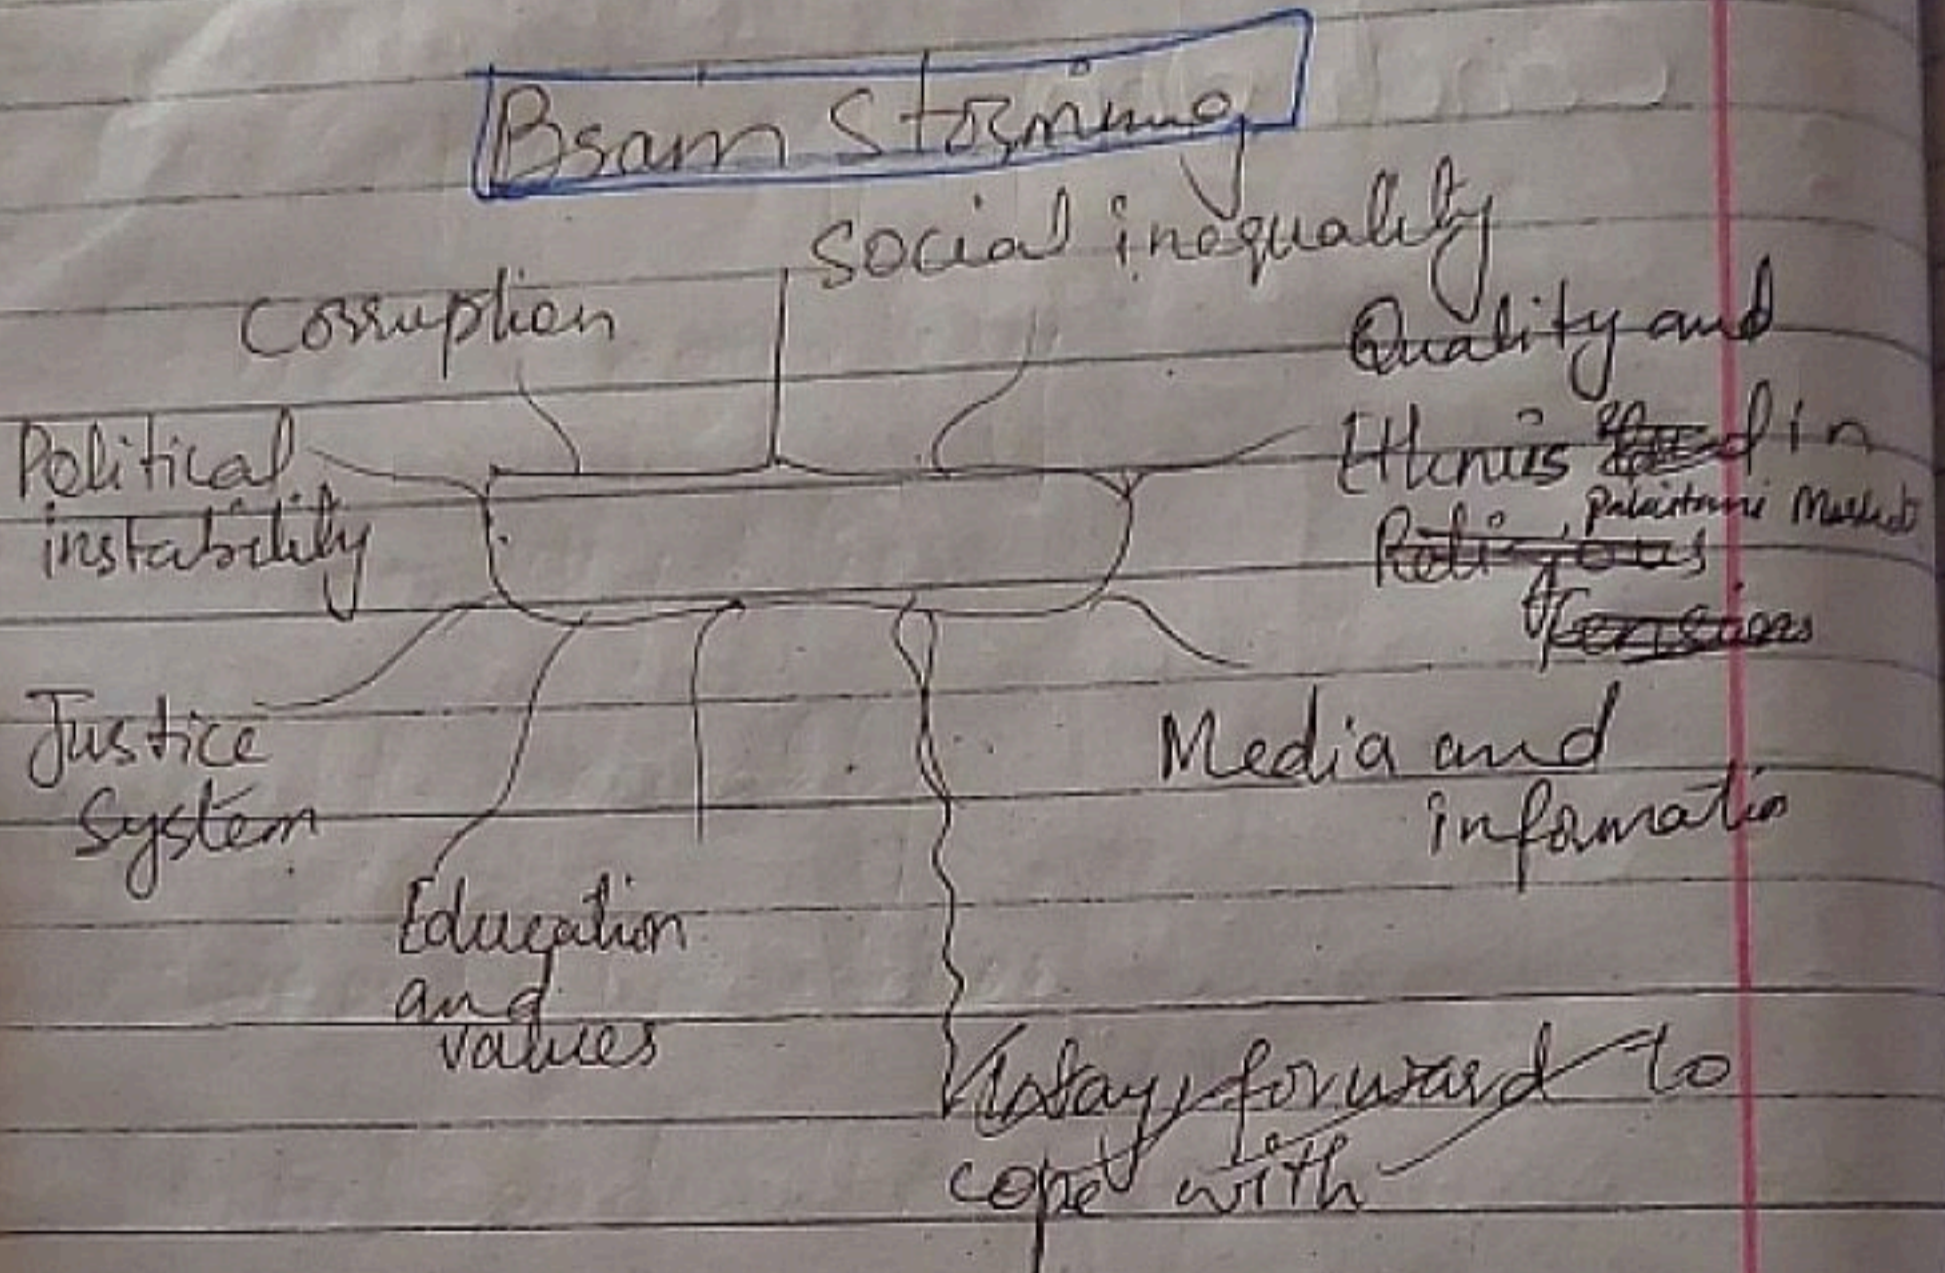 Brain Storming
Social inequality
Corruption
Quality and
Ethnis of food in
Pakistani Market
Religious
Tensions
Political
instability
Justice
System
Media and
infomatio
Education
and
values
Way forward to
cope with